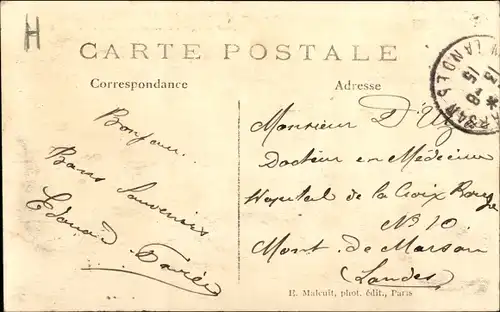 H
CARTE POSTALE
Correspondance
Adresse
Bonjour..
Bons Souvenirs
Edouard
Monsieur D'Uz
Docteur en Médecine
Hospital de la Croix Rouge
No 10
Mont. de Marsan
(Landes)
E. Malcuit, phot. édit., Paris
LANDES
15
8
15